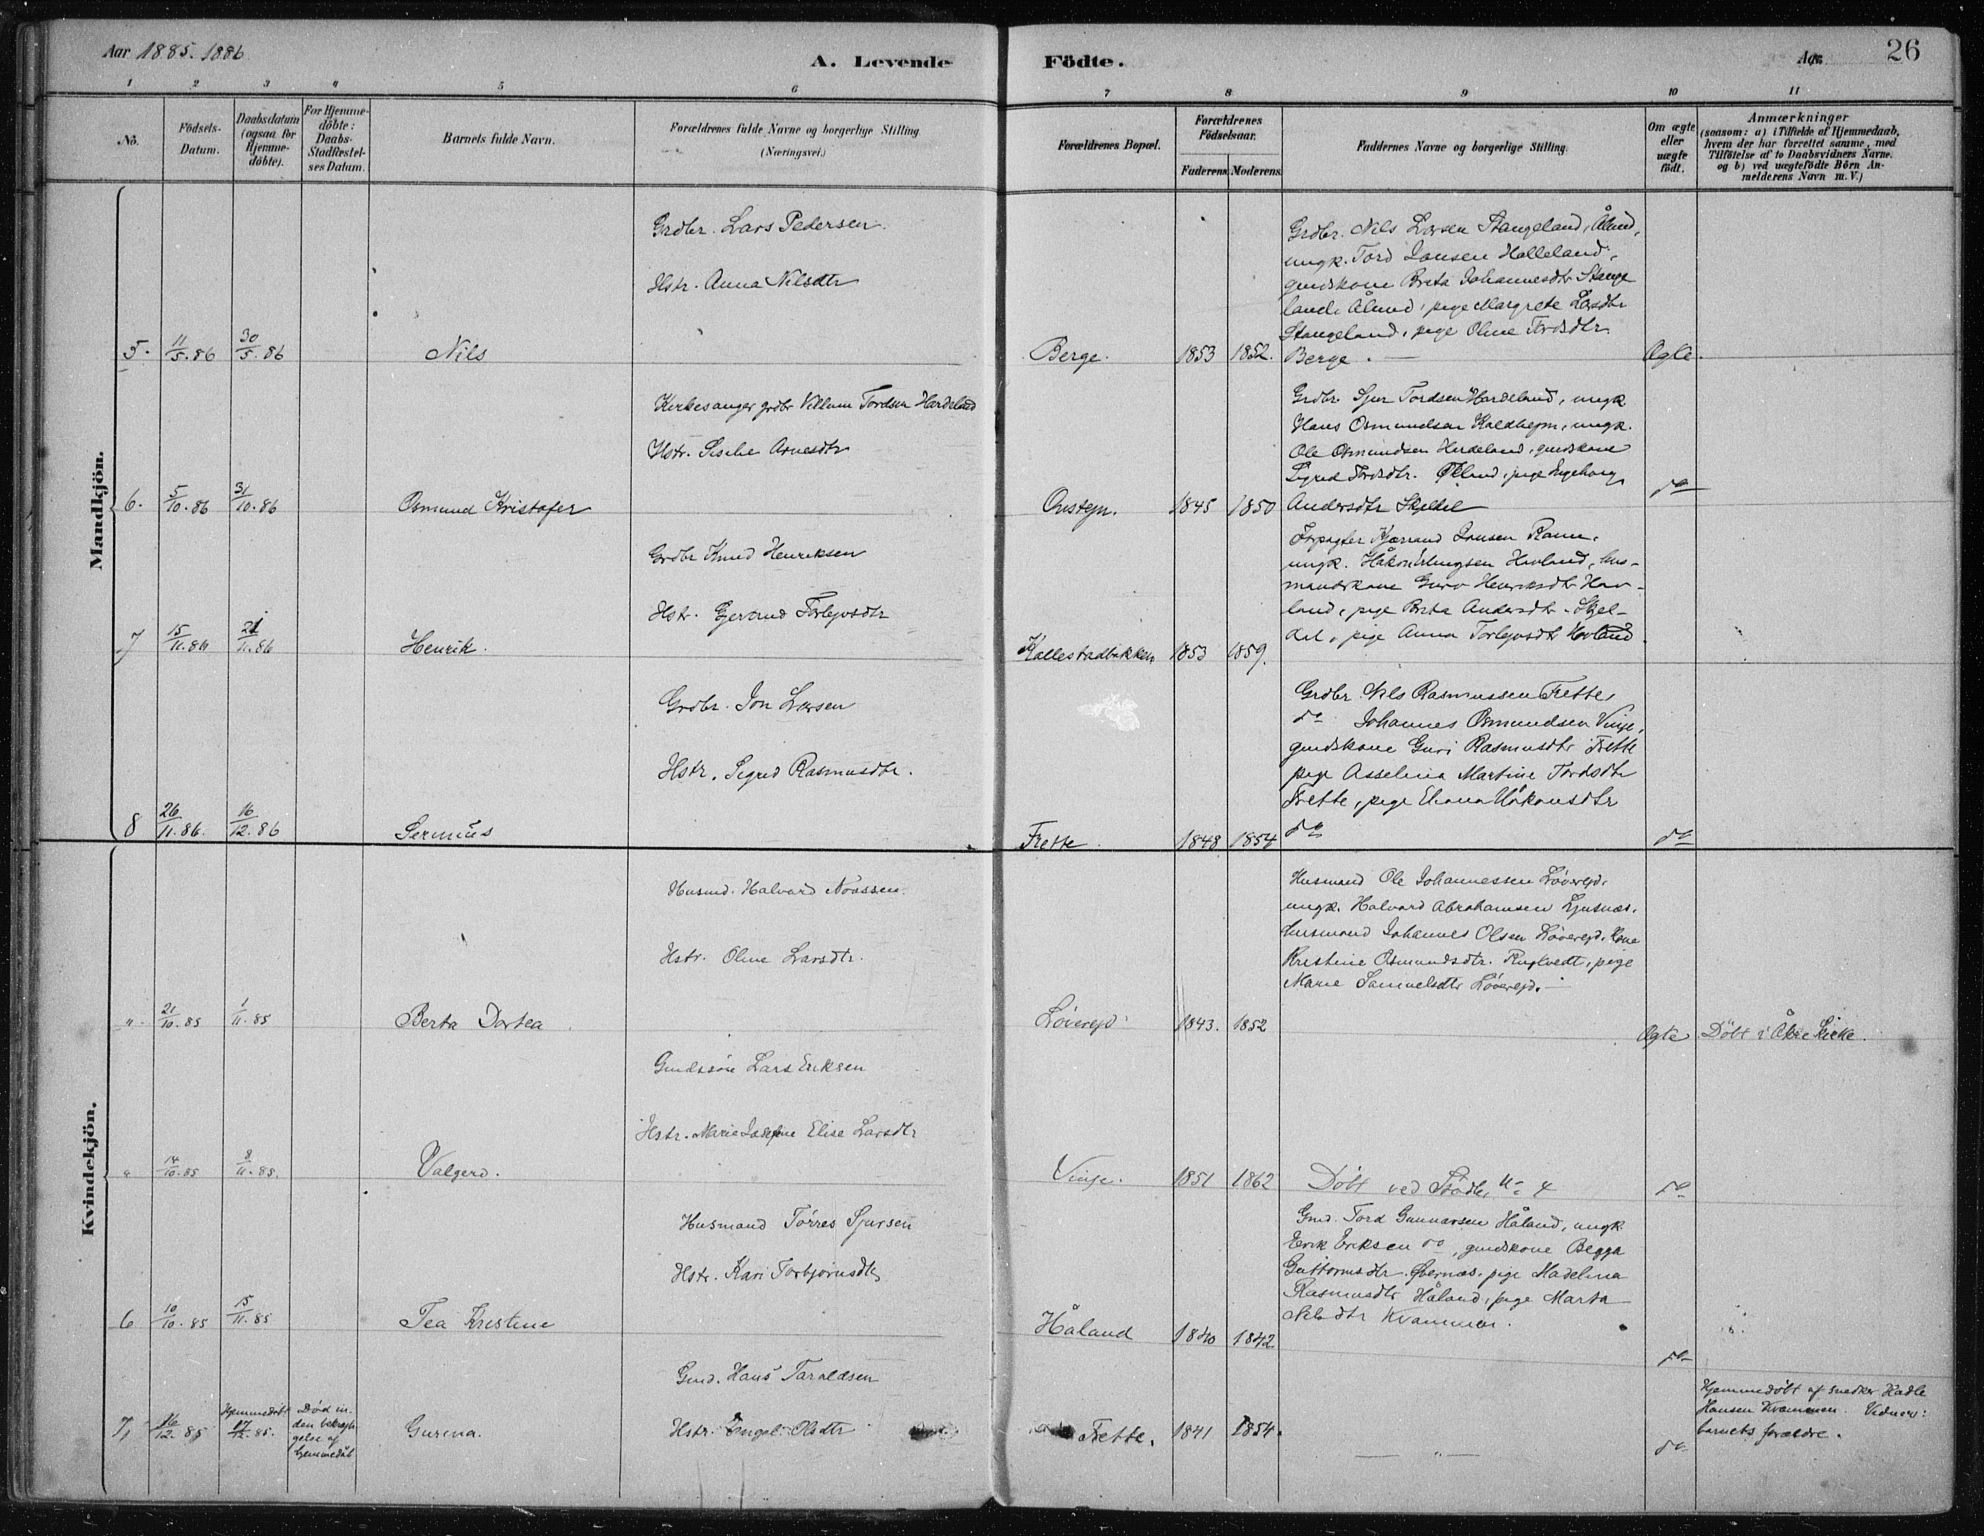 Aar 1885. 1886
A. Levende Födte.
Aar
26
1 2 3 4 5 6 7 8 9 10 11
No.
Födsels-Datum.
Daabsdatum (ogsaa for Hjemme-döbte).
For Hjemme-döbte: Daabs-Stadfæstel-ses Datum.
Barnets fulde Navn.
Forældrenes fulde Navne og borgerlige Stilling (Næringsvei.)
Forældrenes Bopæl.
Forældrenes Födselsaar.
Faderens. Moderens.
Faddernes Navne og borgerlige Stilling.
Om ægte eller uægte födt.
Anmærkninger
(saasom: a) i Tilfælde af Hjemmedaab,
hvem der har forrettet samme, med
Tilföielse af to Daabsvidners Navne.
og b) ved uægtefödte Börn An-
melderens Navn m. V.)
Mandkjön.
5. 11/5.86 30/5.86 Nils
Grdbr. Lars Pedersen
Hstr. Anna Nilsdtr
Berge. 1853 1852.
Grdbr. Nils Larsen Stangeland, Ølund,
ungk. Tord Jansen Halleland,
gmdskone Brita Johannesdtr Stange
land Ølund, pige Margrete Lasdtr
Stangeland, pige Oline Tordsdtr
Berge.
Ægte.
6. 5/10.86 31/10.86 Osmund Kristofer
Kirkesanger grdbr Villum Tordsen Hardeland
Hstr. Sische Arnesdtr
Onstejn. 1845 1850
Grdbr. Sjur Tordsen Hardeland, ungk
Hans Osmundsen Kaldhejm, ungk.
Ole Osmundsen Hardeland, gmdskone
Sigrid Tordsdtr. Ølund, pige Engeborg
Andersdtr Skjeldel
do
7 15/11.86 21/11.86 Henrik.
Grdbr Knud Henriksen
Hstr. Gjertrud Torlejvsdtr
Kallestadbakken 1853 1859.
Forpagter Jansen Ramn,
ungk. Håkon Havland, hus-
mandskone Guro Henriksdtr Hav-
land, pige Brita Andersdtr Skjel-
del, pige Anna Torlejvsdtr Havland
8 26/11.86. 16/12.86 Sermius
Grdbr. Jon Larsen
Hstr. Sigrid Rasmusdtr.
Frette. 1848 1854
Grdbr Nils Rasmussen Frette,
do Johannes Osmundsen Vinje,
gmdskone Guri Rasmusdtr Frette
pige Asselina Martine Tordsdtr
Frette, pige Håkonsdtr
do
do
Kvindekjön.
" 21/10.85 1/11.85 Berta Dortea
Husmd. Halvard Noassen.
Hstr. Oline Larsdtr.
Løverejd 1843. 1852
Husmand Ole Johannessen Løverejd,
ungk. Halvard Abrahamsen Ljusnæs,
husmand Johannes Olsen Løverejd, kone
Kristine Osmundsdtr. pige
Marie Samuelsdtr Løverejd.
Ægte Döbt i Åkre Kirke.
" 14/10.85 8/11.85. Valgerd.
Gmdssön Lars Eriksen
Hstr. Marie Josefine Elise Larsdtr
Vinje. 1851 1862 Döbt ved Stödle, No 4 do
6 10/10.85 15/11.85 Tea Kristine
Husmand Törres Sjursen
Hstr. Kari Torbjörnsdtr
Håland 1840 1842
Gmd. Tord Gunnarsen Håland, ungk
Eerik Eriksen do, gmdskone Begga
Guttormsdtr. Øvernæs, pige Madelina
Rasmusdtr Håland, pige Marta
Nilsdtr Kvammen.
do
7, 16/12.85 Hjemmedöbt 17/12.85.
Död in-
den bekræf-
gelse af
hjemmedåb
Gurina.
Gmd. Hans Taraldsen
Hstr. Engel Olsdtr
Frette. 1841 1854. " do
Hjemmedöbt af snedker Hadle
Hansen Kvammen. Vidner:
barnets forældre.